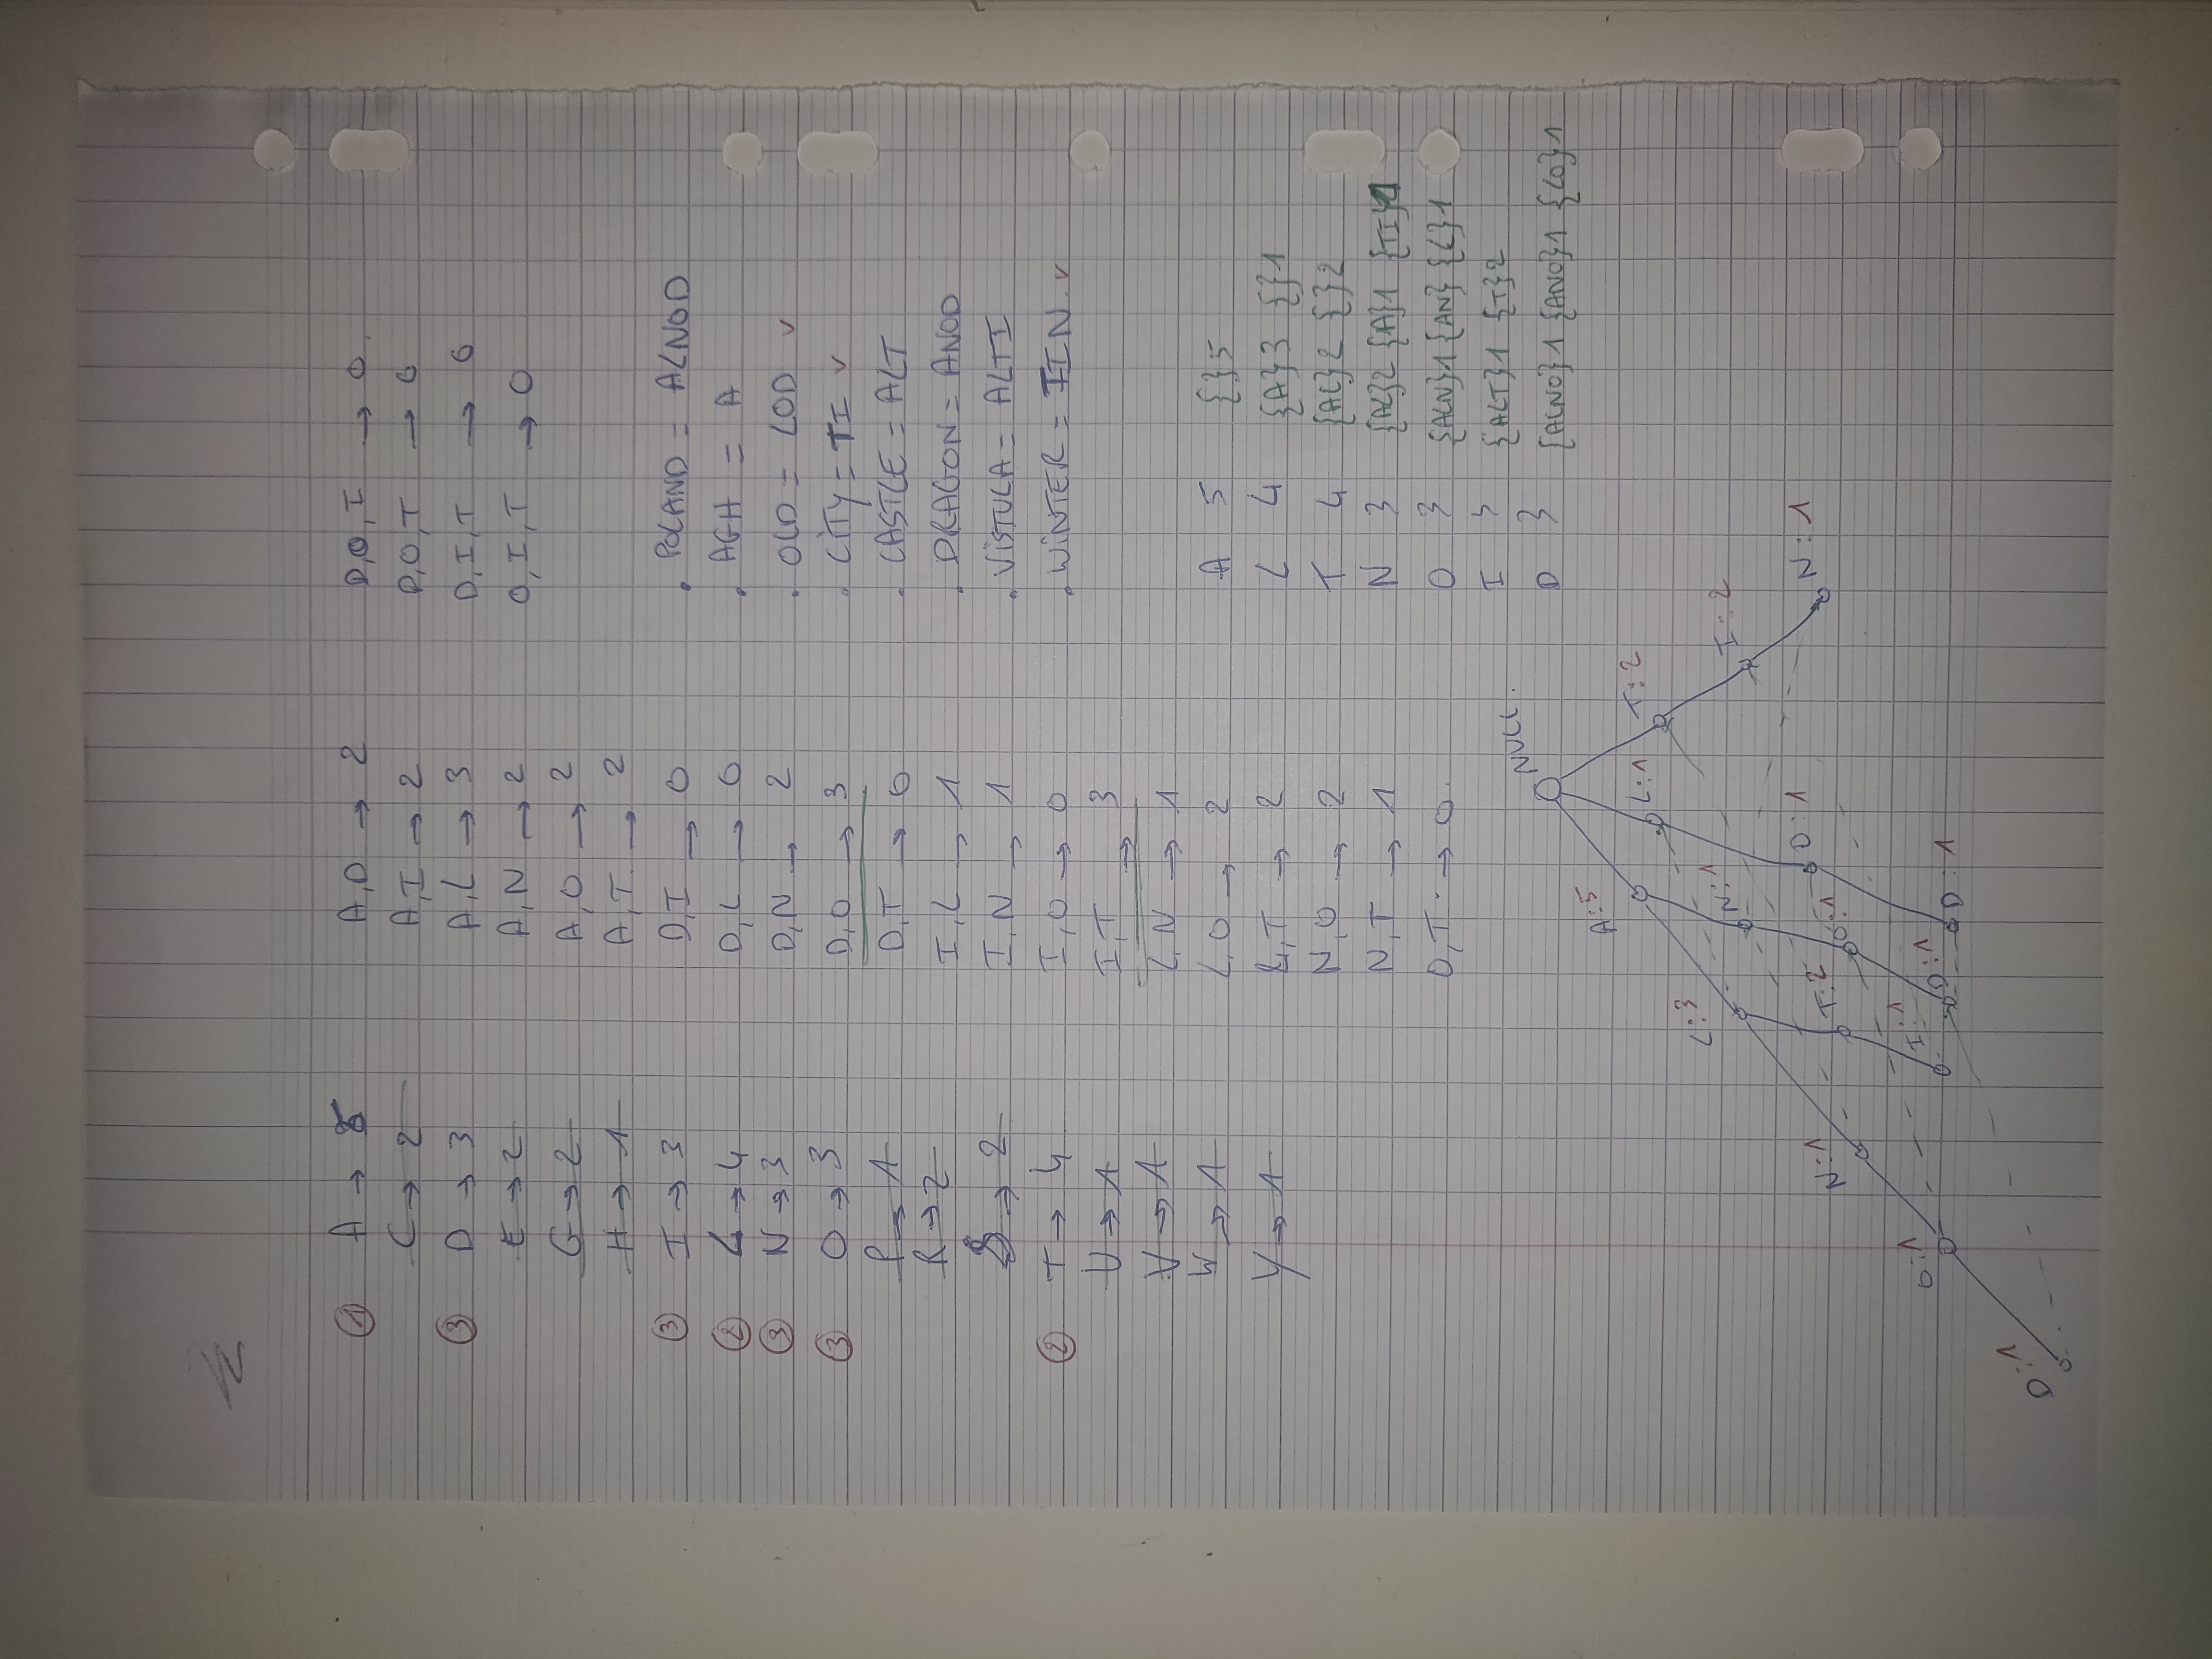 ① A → 5
C → 2
③ D → 3
E → 2
G → 2
H → 1
③ I → 3
② L → 4
③ N → 3
③ O → 3
P → 1
R → 2
S → 2
② T → 4
U → 1
V → 1
W → 1
Y → 1
A,D → 2
A,I → 2
A,L → 3
A,N → 2
A,O → 2
A,T. → 2
D,I → 0
D,L → 0
D,N → 2
D,O → 3
D,T → 0
I,L → 1
I,N → 1
I,O → 0
I,T → 3
L,N → 1
L,O → 2
L,T → 2
N,O → 2
N,T → 1
O,T → 0.
D,O,I → 0.
D,O,T → 0
D,I,T → 0
O,I,T → 0
. POLAND = ALNOD
. AGH = A
. OLD = LOD ✓
. CITY = TI ✓
. CASTLE = ALT
. DRAGON = ANOD
. VISTULA = ALTI
. WINTER = TIN. ✓
A 5 {}5
L 4 {A}3 {}1
T 4 {AL}2 {}2
N 3 {AL}2 {A}1 {TI}1
O 3 {ALN}1 {AN} {L}1
I 3 {ALT}1 {T}2
D 3 {ALNO}1 {ANO}1 {LO}1
NULL.
A:5
L:1
T:2
L:3
N:1
I:2
N:1
T:2
O:1
O:1
N:1
O:1
I:1
D:1
D:1
D:1